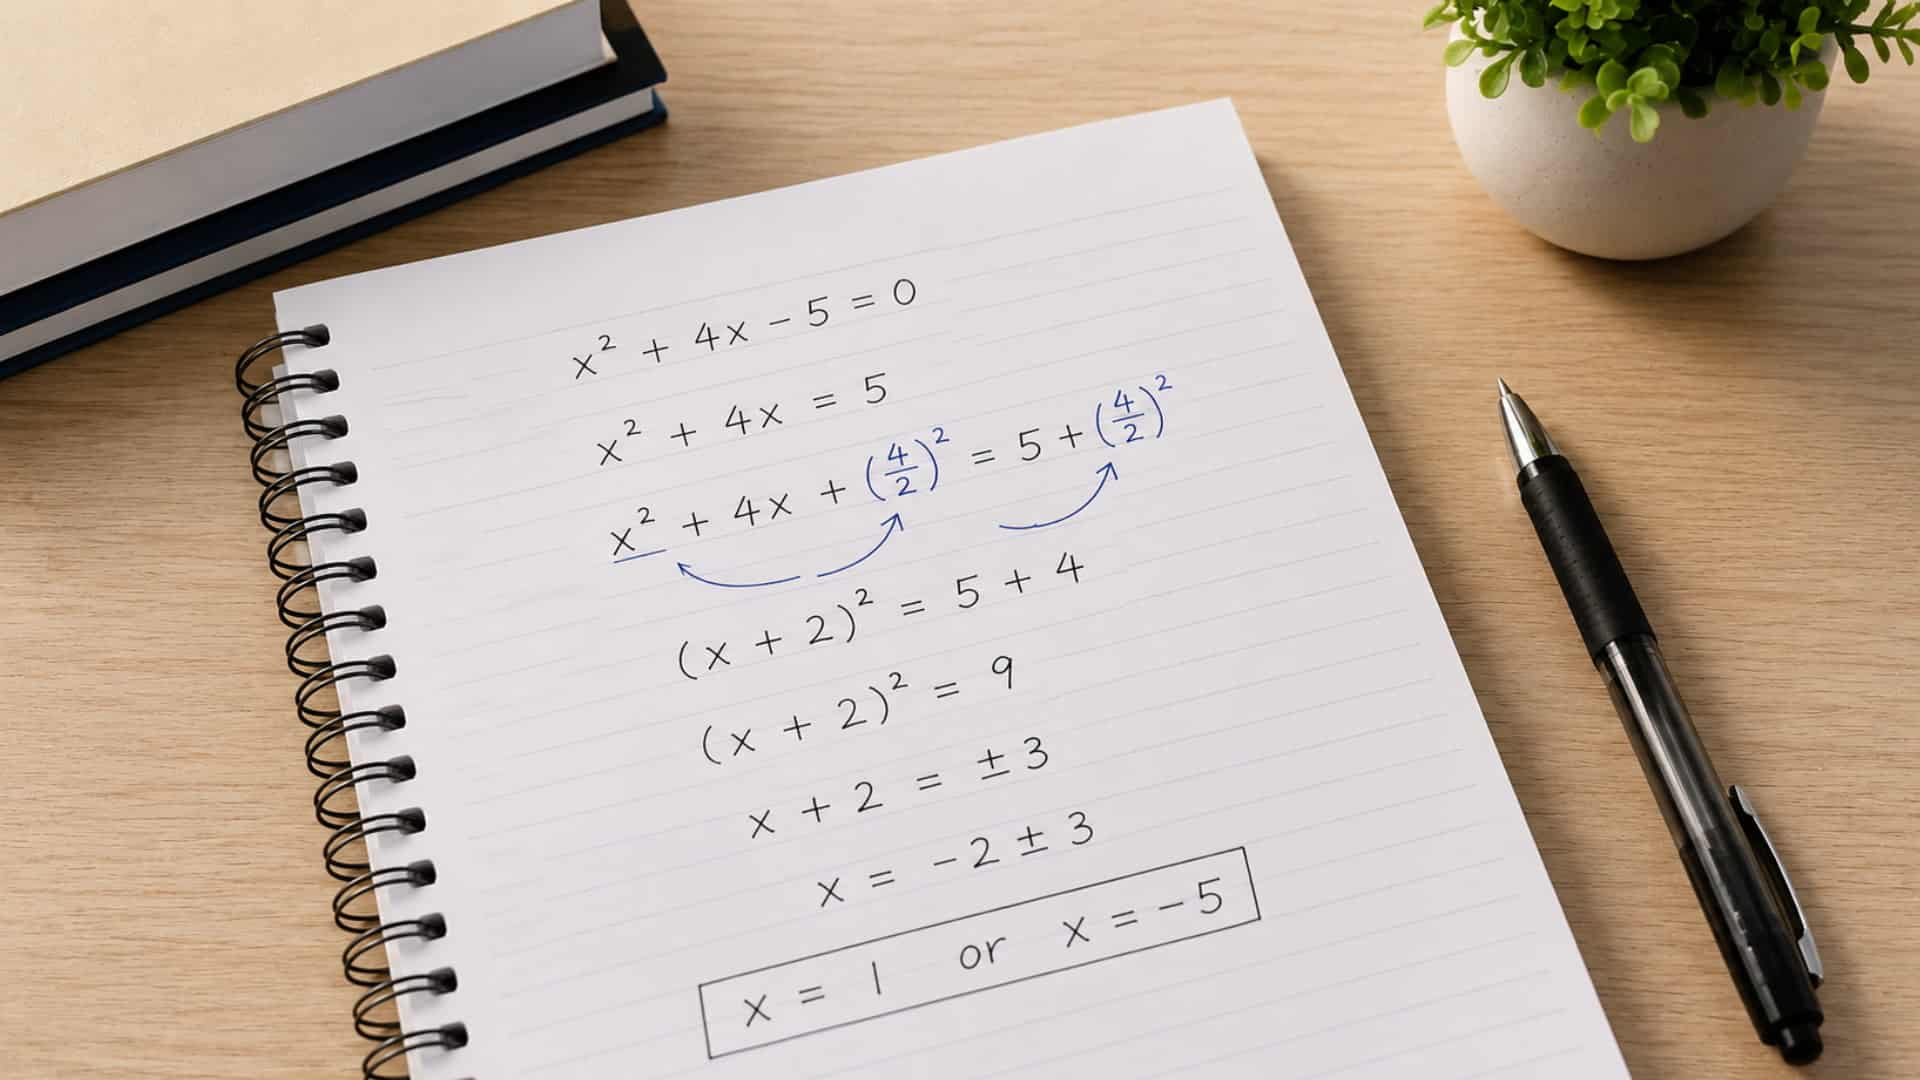 x² + 4x - 5 = 0
x² + 4x = 5
x² + 4x + (4/2)² = 5 + (4/2)²
(x + 2)² = 5 + 4
(x + 2)² = 9
x + 2 = ± 3
x = -2 ± 3
x = 1 or x = -5